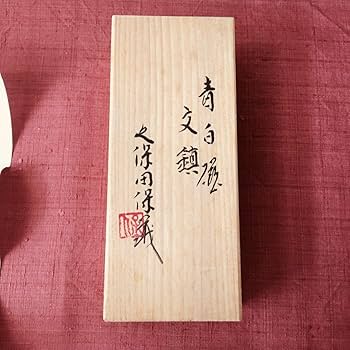 青白
文鎮
久保田保義